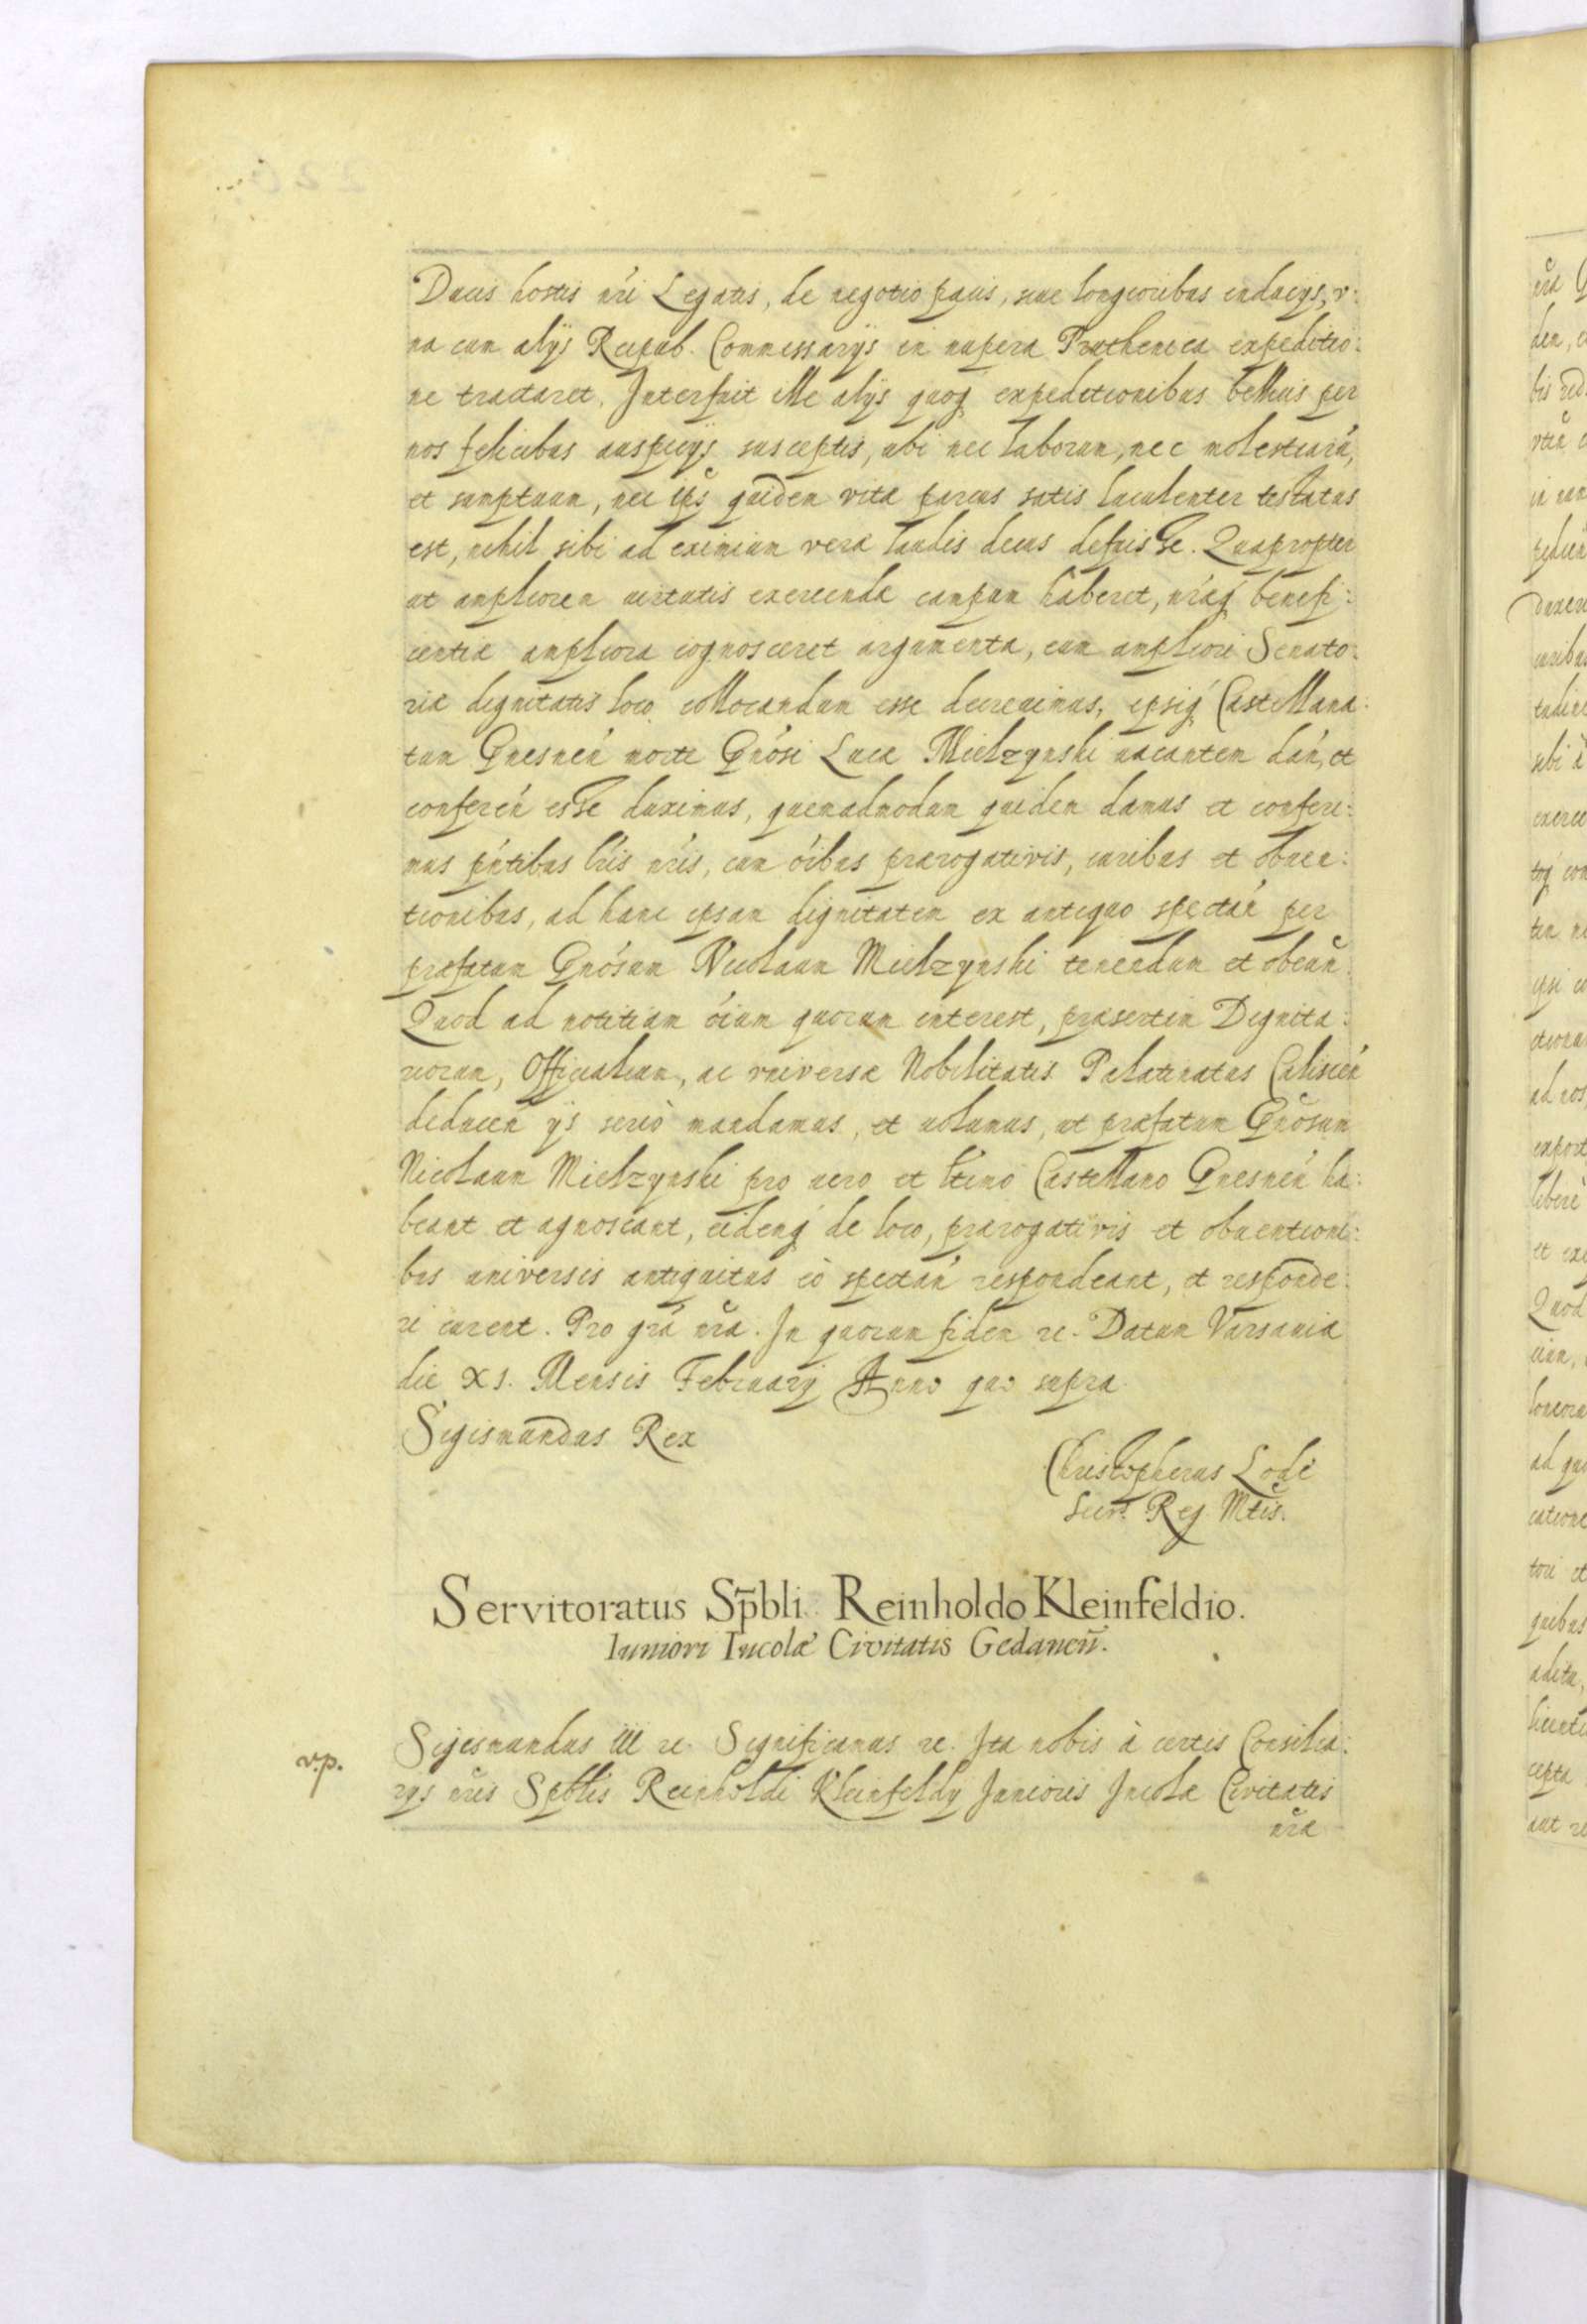 Ducis hostis nri Legatis, de negotio pacis, siue longioribus inducijs, v:
na cum alijs Reipub. Commissarijs in nupera Pruthenica expeditio:
ne tractaret. Interfuit ille alijs quoq expeditionibus bellicis per
nos felicibus auspicijs susceptis, ubi nec laborum, nec molestiarũ,
et sumptuum, nec ips quidem vitæ parcus satis luculenter testatus
est, nihil sibi ad eximium veræ laudis decus defuisse. Quapropter
ut ampliorem uirtutis exercendæ campum haberet, nraq benefi:
centiæ ampliora cognosceret argumenta, eum ampliori Senato:
riæ dignitatis loco collocandum esse decreuimus, ipsiq Castellana:
tum Gnesneń morte Gnósi Lucæ Mielzynski uacantem dań, et
confereń esse duximus, quemadmodum quidem damus et conferi:
mus pńtibus lris nris, cum óibus prærogativis, iuribus et obuen:
tionibus, ad hanc ipsam dignitatem ex antiquo spectań per
præfatum Gnósum Nicolaum Mielzynski tenendum et obeuñ.
Quod ad notitiam óium quorum interest, præsertim Dignita:
riorum, Officialium, ac vniversæ Nobilitatis Palatinatus Calisień
deduceń ijs serió mandamus, et uolumus, ut præfatum Gnosum
Nicolaum Mielzynski pro uero et ltimo Castellano Gnesneń ha:
beant et agnoscant, eidenq de loco, prærogativis et obuentioni:
bus universis antiquitus eò spectań respondeant, et responde:
ri curent. Pro grá nrã. In quorum fidem rc. Datum Varsauiæ
die XI. Mensis Februarij Anno quo supra
Sigismundus Rex
Christopherus Lodi
Secrs Reg Mtis.
Servitoratus Sp̄bli. Reinholdo Kleinfeldio.
Iuniori Incolæ Civitatis Gedaneñ.
v.p.
Sigismundus III rc. Significamus rc. Ita nobis à certis Consilia:
rijs nris Spblis Reinholdi Kleinfeldij Junioris Incolæ Civitatis
nræ